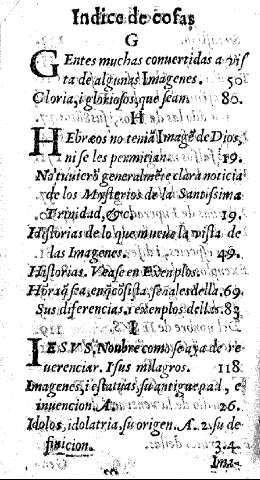 Indice de cosas
G
GEntes muchas convertidas a vis
ta de algunas Imagenes. 50
Gloria, i gloriosos, que sean. 80.
H
HEbræos no teniã Image̅ de Dios,
ni se les permitian. 19.
No tuviero̅ generalme̅te clara noticia
de los Mysterios de la Santissima
Trinidad, &c. 19.
Historias de lo que mueve la vista de
las Imagenes. 49.
Historias. Vease en Exemplos.
Hõra q̃ sea, en q̃ cõsista, señales della. 69.
Sus diferencias, i exemplos dellas. 83
I
IESVS, Nonbre como se aya de re
uerenciar. I sus milagros. 118
Imagenes, i estatuas, su antiguedad, e
invencion. A. 26.
Idolos, idolatria, su origen. A. 2. su de
finicion. 3. 4.
Ima-